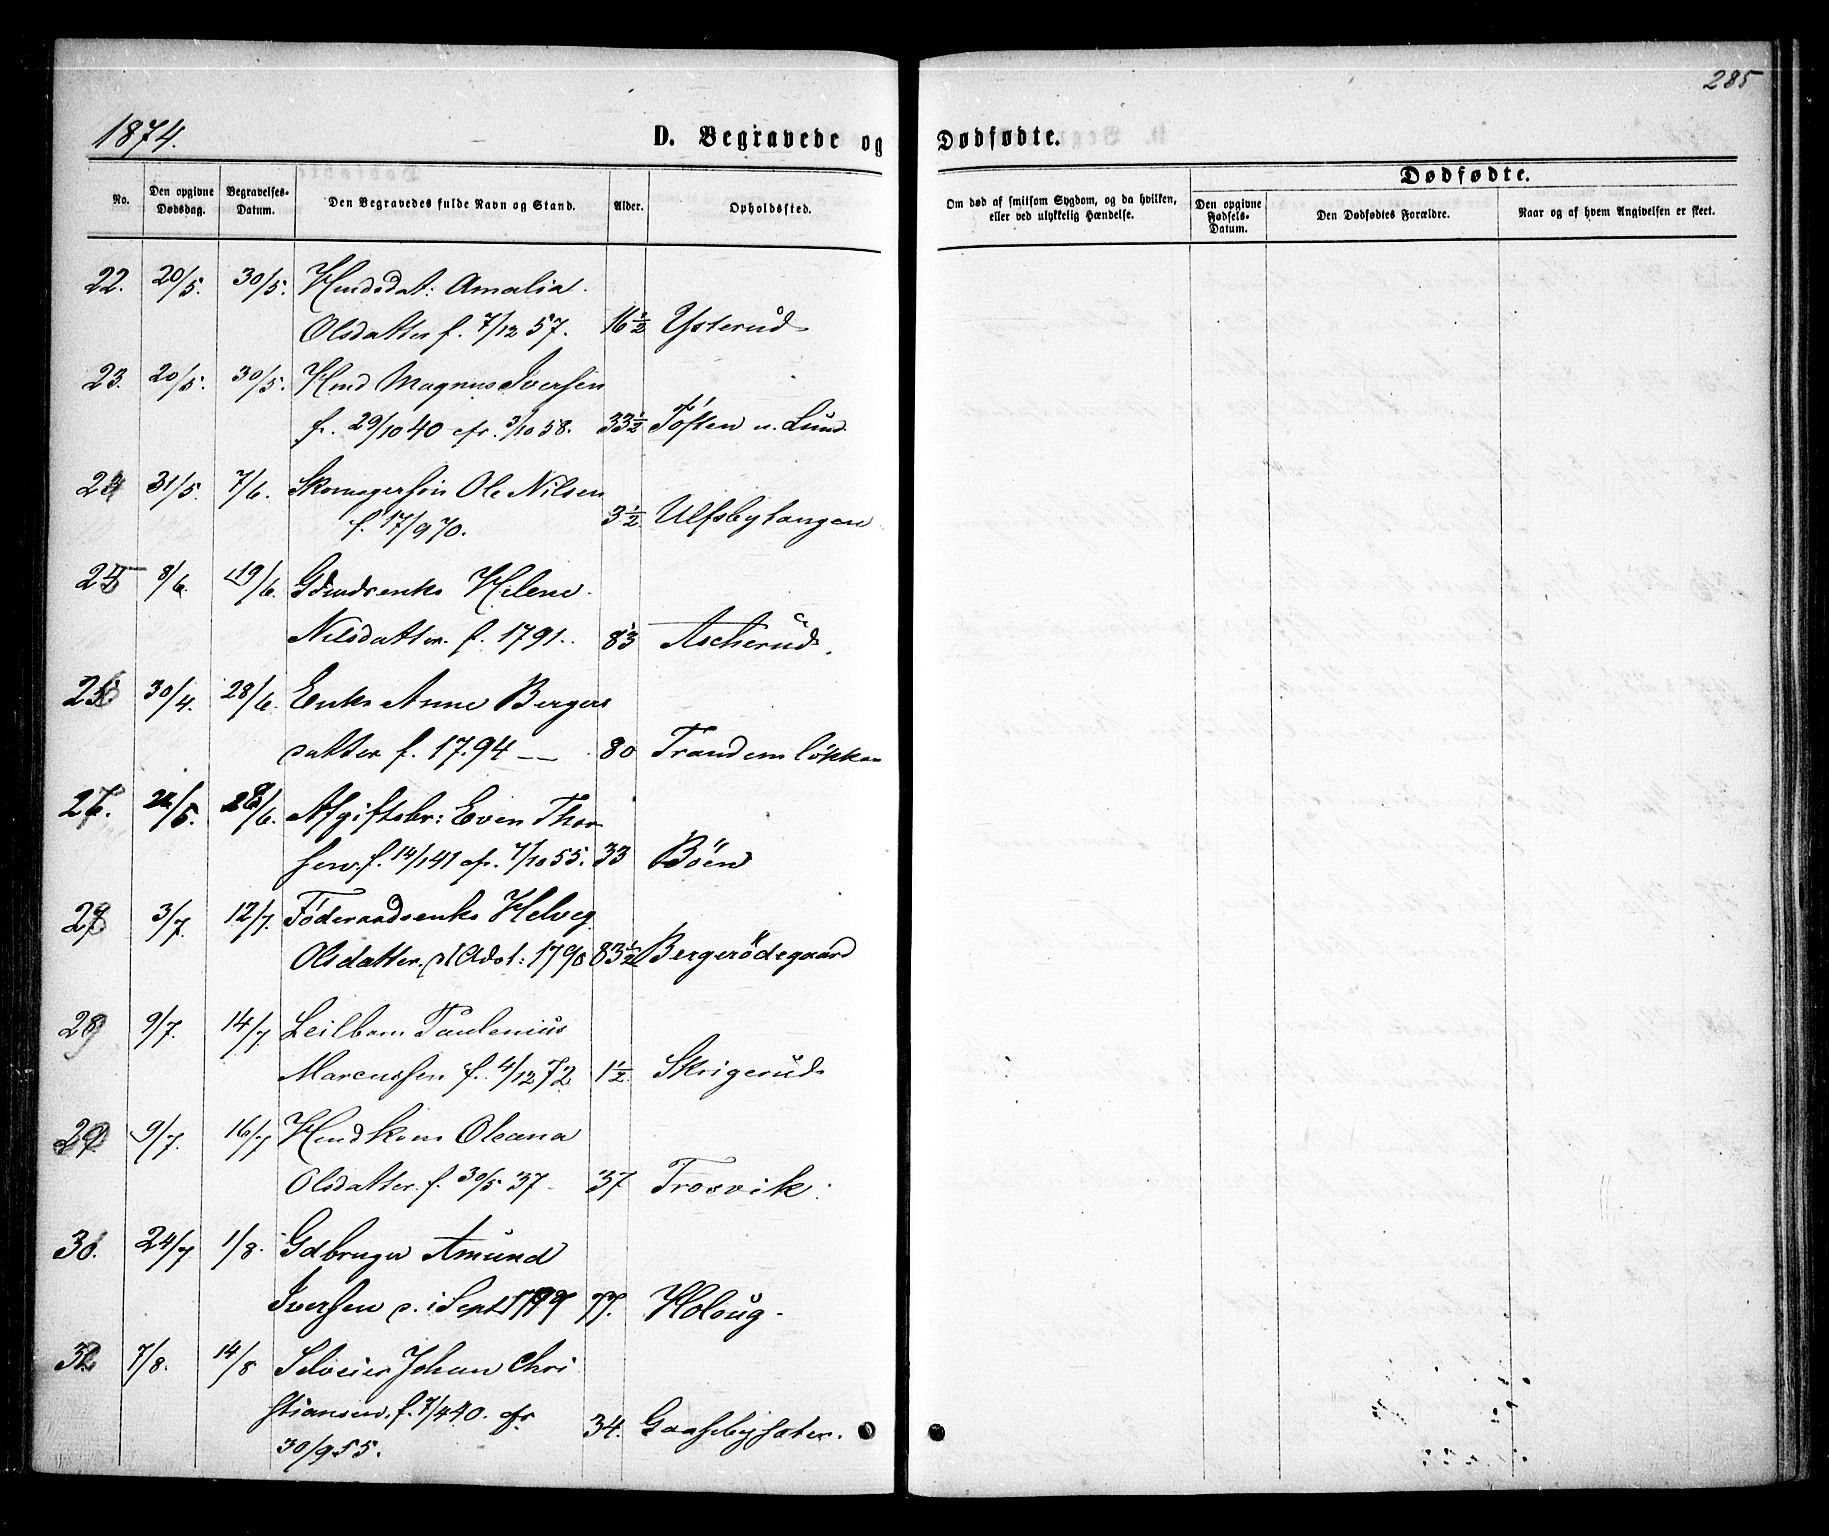 285
1874.
D. Begravede og Dødfødte.
No.
Den opgivne Dødsdag.
Begravelses-Datum.
Den Begravedes fulde Navn og Stand.
Alder.
Opholdsted.
Om død af smitsom Sygdom, og da hvilken, eller ved ulykkelig Hændelse.
Dødfødte.
Den opgivne Fødsels-Datum.
Den Dødfødtes Forældre.
Naar og af hvem Angivelsen er skeet.
22. 20/5. 30/5. Hmdsdat: Amalia
Olsdatter f. 7/12 57. 16½ Ysterud
23. 20/5. 30/5. Hmd Magnus Iversen
f. 29/10 40 cfr. 3/10 58. 33½ Toften u. Lund
24 31/5. 7/6. Skomagersön Ole Nilsen
f. 17/9 70. 3½ Ulfsbytangen
25 8/6. 19/6. Gdmdsenke Helene
Nilsdatter f. 1791. 83 Ascherud.
26 30/4. 28/6. Enke Anne Bergers
datter f. 1794 — 80 Trandemlökka
27. /5. 28/6. Afgiftsbr: Even Thor
sen f. 14/1 41 cfr. 7/10 55. 33 Böen
28 3/7. 12/7. Föderaadsenke Helveg
Olsdatter 1790 83½ Bergerödegaard
29 9/7. 14/7. Leilbarn Paulenius
Marcussen f. 4/12 72 1½ Skrigerud
9/7. 16/7 Hmdkone Oleana
Olsdatter f. 30/5 37 37 Trosvik.
24/7 1/8. Gdbruger Amund
Iversen d. i Sept 77. Holoug
32 7/8. 14/8 Selveier Johan Chri
stiansen. f. 7/4 40. cfr. 34. Gaasebysæter.
30/9 55.